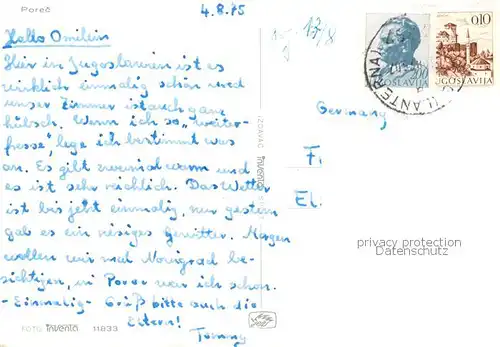 Poreč
4.8.75
Hallo Omilein
Hier in Jugoslawien ist es
wirklich einmalig schön und
unser Zimmer ist auch ganz
hübsch. Wenn ich so "weiter-
fresse", lege ich bestimmt was
an. Es gibt zweimal warm und
es ist sehr reichlich. Das Wetter
ist bis jetzt einmalig, nur gestern
gab es ein riesiges Gewitter. Morgen
wollen wir mal Novigrad be-
sichtigen, in Porec war ich schon.
-Einmalig- Grüß bitte auch die
Eltern!
Tommy
FOTO Inventa 11833
IZDAVAČ Inventa
13/8
JUGOSLAVIJA
0,10
JUGOSLAVIJA
LANTERNA
Germany
F.
El.
privacy protection
www.oldthing.de